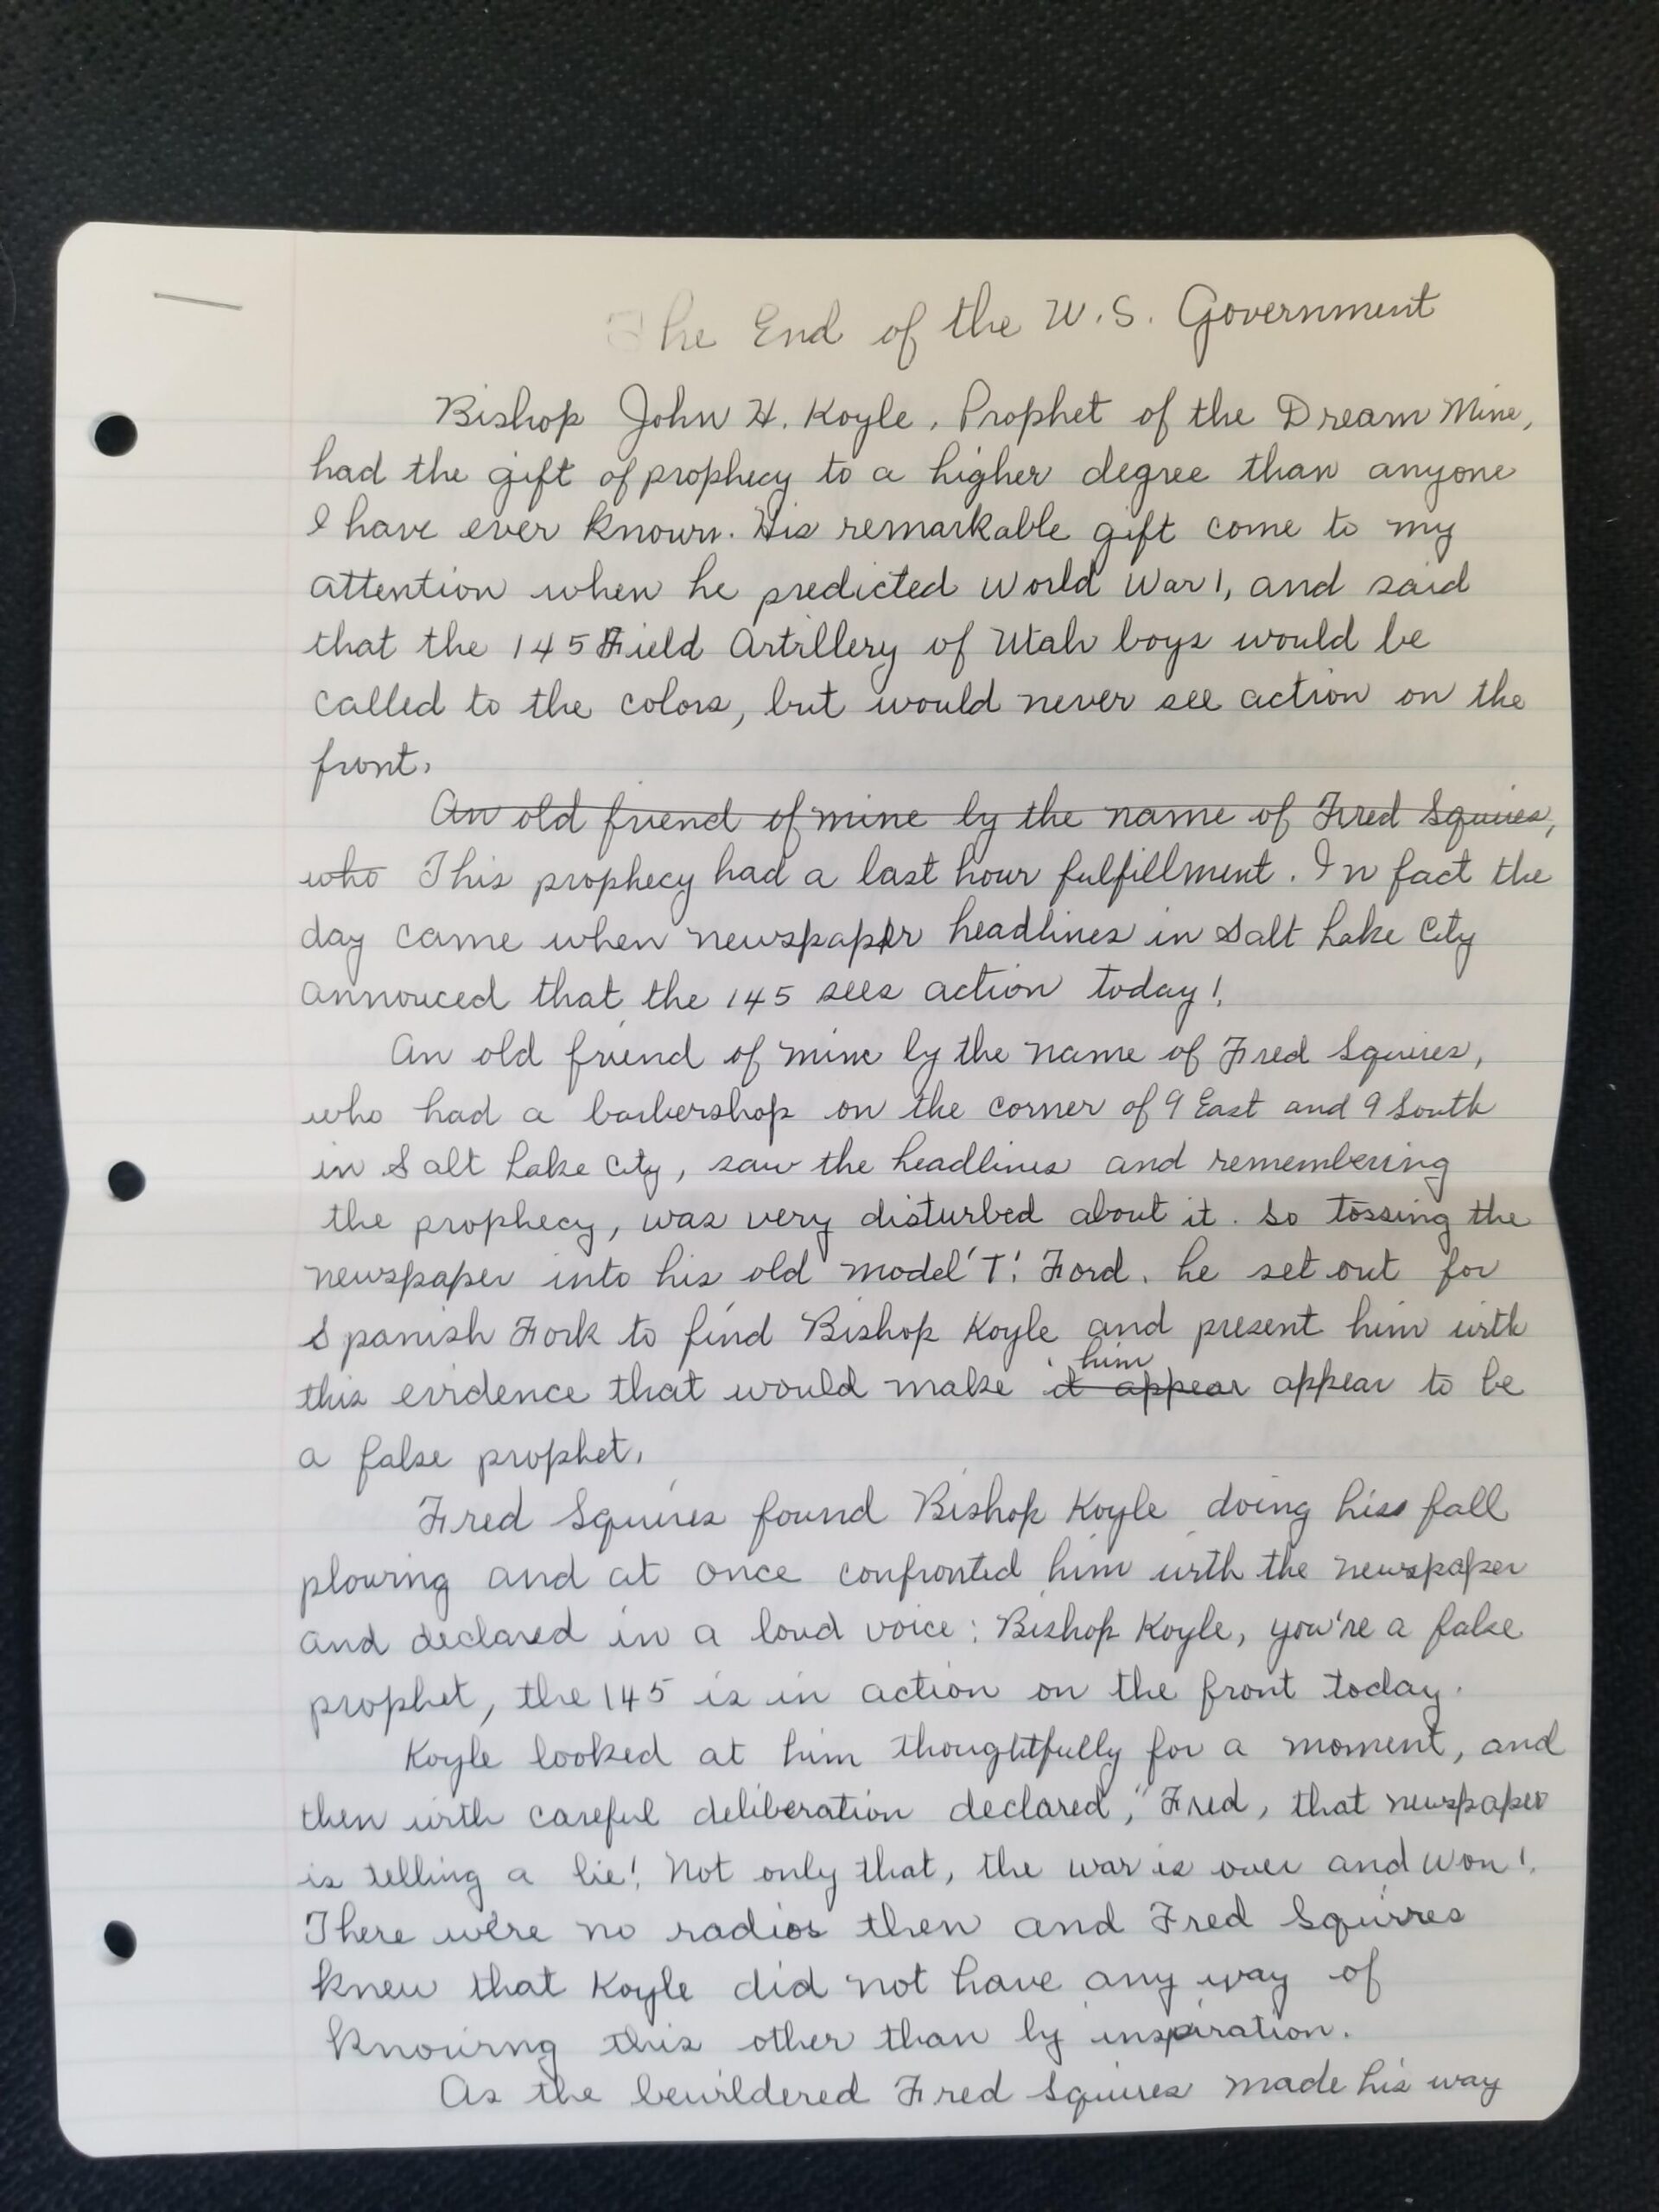 The End of the U.S. Government
Bishop John H. Koyle, Prophet of the Dream Mine,
had the gift of prophecy to a higher degree than anyone
I have ever known. His remarkable gift come to my
attention when he predicted World War 1, and said
that the 145 Field Artillery of Utah boys would be
called to the colors, but would never see action on the
front.
An old friend of mine by the name of Fred Squires,
who This prophecy had a last hour fulfillment. In fact the
day came when newspaper headlines in Salt Lake City
annouced that the 145 sees action today!
An old friend of mine by the name of Fred Squires,
who had a barbershop on the corner of 9 East and 9 South
in Salt Lake City, saw the headlines and remembering
the prophecy, was very disturbed about it. So tossing the
newspaper into his old model 'T' Ford, he set out for
Spanish Fork to find Bishop Koyle and present him with
him
this evidence that would make it appear appear to be
a false prophet.
Fred Squires found Bishop Koyle doing his fall
plowing and at once confronted him with the newspaper
and declared in a loud voice: Bishop Koyle, you're a false
prophet, the 145 is in action on the front today.
Koyle looked at him thoughtfully for a moment, and
then with careful deliberation declared, "Fred, that newspaper
is telling a lie! Not only that, the war is over and won!
There were no radios then and Fred Squires
knew that Koyle did not have any way of
knowing this other than by inspiration.
As the bewildered Fred Squires made his way